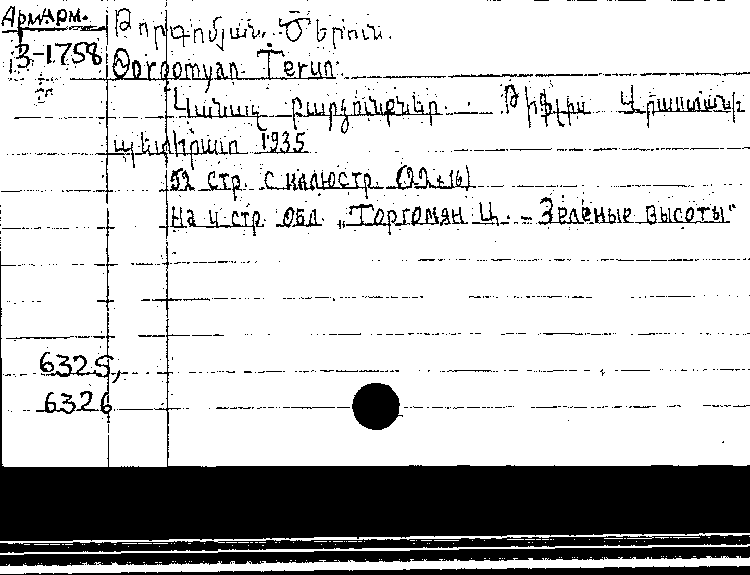 АрмАрм.
Թորգոմյան. Ծերուն.
3-1758
Թorgomyan. Terun.
Կանաչ բարձունքներ. Թիֆլիս Վրաստանի
պետհրատ 1935
52 стр. с иллюстр. (22x16)
На 4 стр. обл. „Торгомян Ц. – Зеленые высоты"
6325,
6326